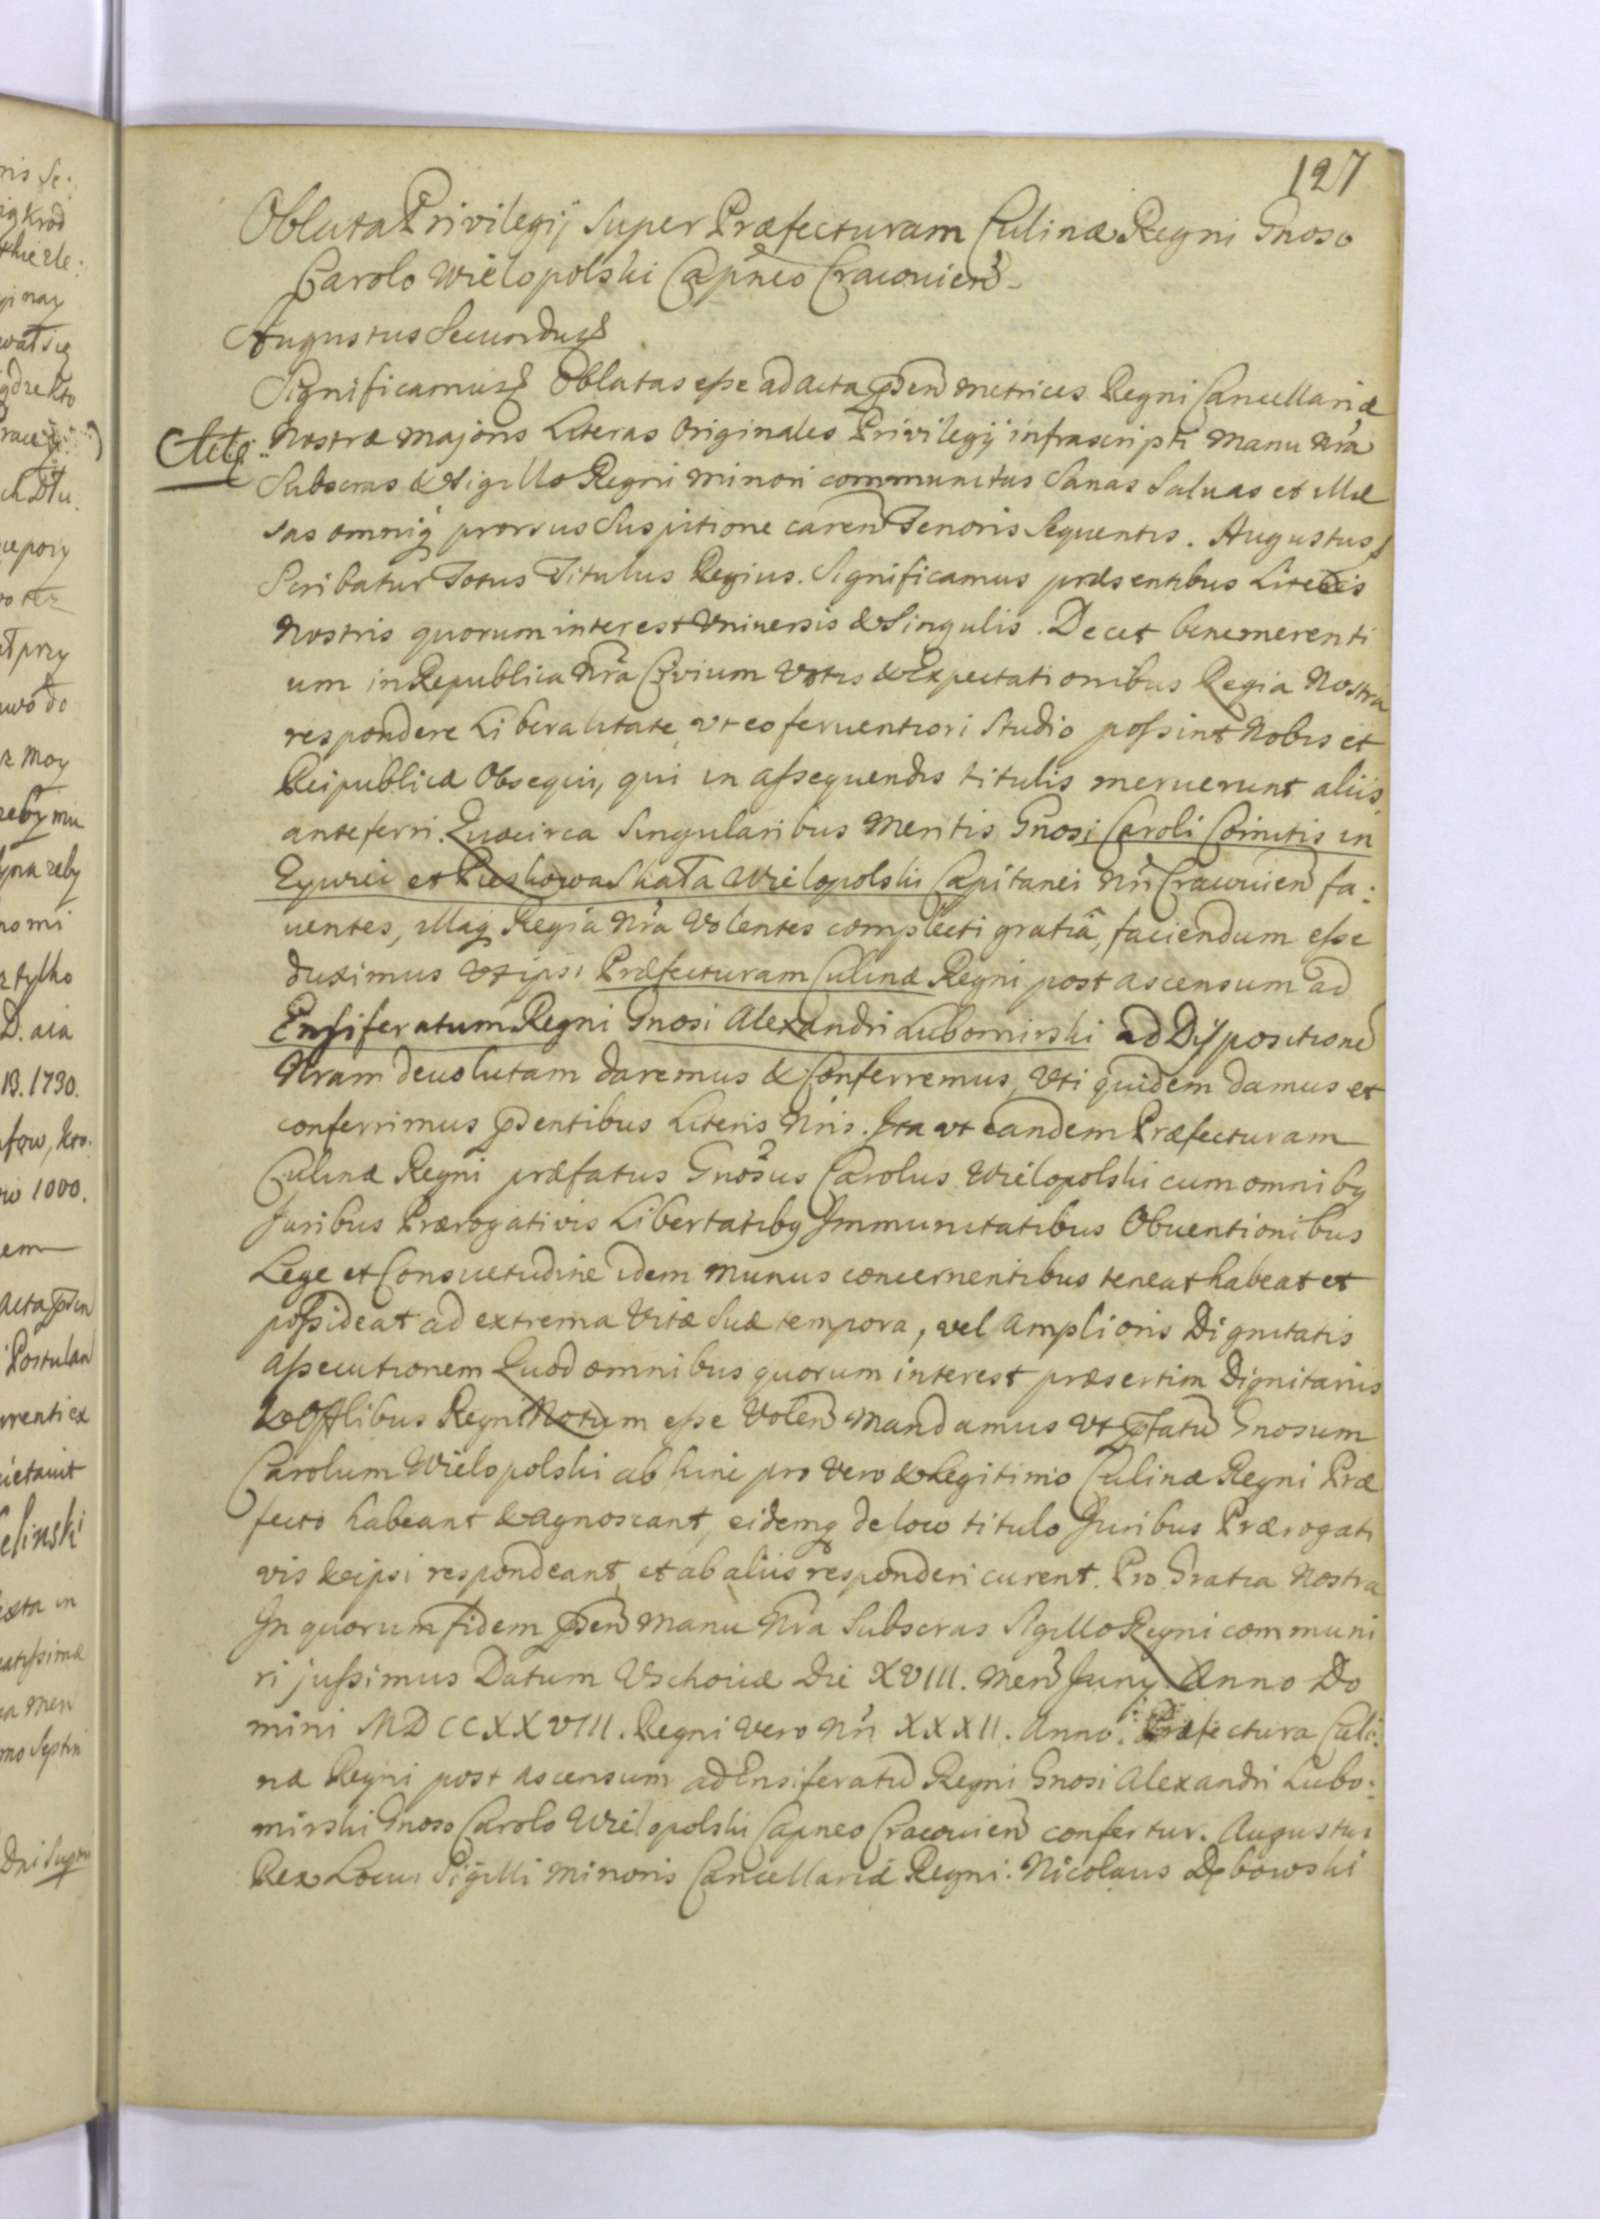 127
Oblata Privilegij super Præfecturam Culinæ Regni Gnoso
Carolo Wielopolski Capneo Cracouien
Augustus Secundus
Significamus Oblatas esse ad acta psen metrices Regni Cancellariæ
Nostræ majoris Literas Originales Privilegij infrascripti manu Nra
Subscras & Sigillo Regni minori communitas Sanas Saluas et Illæ
sas omniq prorsus Suspitione caren Tenoris Sequentis. Augustus
Scribatur Totus Titulus Regius. Significamus præsentibus Literis
Nostris quorum interest Vniuersis & Singulis. Decet benemerenti
um in Republica Nra Civium Votis & Expectationibus Regia Nostra
respondere Liberalitate, vt eo feruentiori Studio possint Nobis et
Reipublicæ Obsequi, qui in assequendis titulis meruerunt aliis
anteferri. Quocirca Singularibus Meritis Gnosi Caroli Comitis in
et Pieskowa Skała Wielopolski Capitanei Nri Cracouien fa:
uentes, Mag Regia Nra Volentes complecti gratiâ, faciendum esse
duximus vt ipsi Præfecturam Culinæ Regni post ascensum ad
Ensiferatum Regni Gnosi Alexandri Lubomirski ad Dispositione
Nram deuolutam daremus & Conferremus, Vti quidem damus et
conferrimus psentibus Literis Nris. Ita vt eandem Præfecturam
Culinæ Regni præfatus Gnosus Carolus Wielopolski cum omnibq
Juribus Prærogativis Libertatibq Immunitatibus Obuentionibus
Lege et Consuetudine idem munus concernentibus teneat habeat et
possideat ad extrema Vitæ Suæ tempora, vel Amplioris Dignitatis
assecutionem Quod omnibus quorum interest præsertim Dignitariis
& Offlibus Regni Notum esse Volen Mandamus vt pfatu Gnosum
Carolum Wielopolski ab hinc pro Vero & Legitimo Culinæ Regni Præ
fecto habeant & agnoscant, eidemq de loco titulo Juribus Prærogati
vis & ipsi respondeant, et ab aliis responderi curent. Pro Gratia Nostra
In quorum fidem psen Manu Nra Subscras Sigillo Regni communi
ri jussimus Datum Vschouæ Die XVIII. Men Juny Anno Do
mini MDCCXXVIII. Regni Vero Nri XXXII. Anno. Præfectura Culi:
næ Regni post ascensum ad Ensiferatu Regni Gnosi Alexandri Lubo:
mirski Gnoso Carolo Wielopolski Capneo Cracouien confertur. Augustus
Rex Locus Sigilli Minoris Cancellariæ Regni. Nicolaus Dębowski